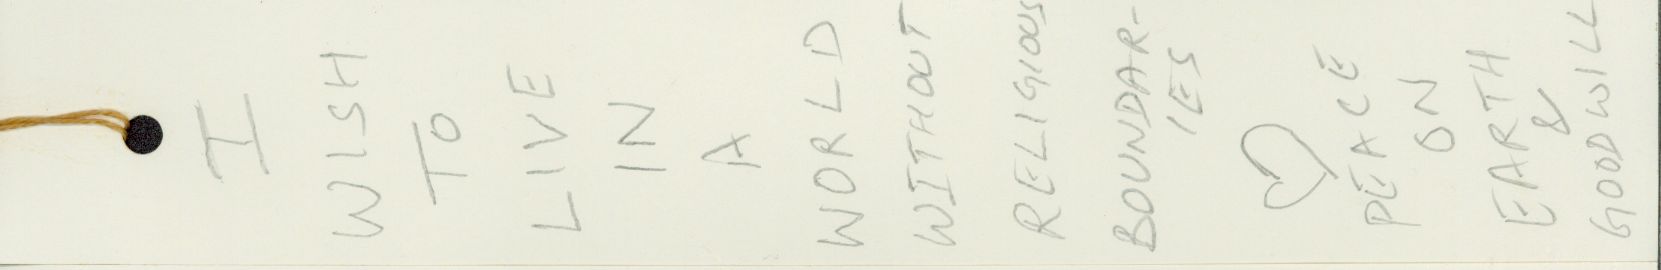 I
WISH
TO
LIVE
IN
A
WORLD
WITHOUT
RELIGIOUS
BOUNDAR-
IES
PEACE
ON
EARTH
&
GOODWILL